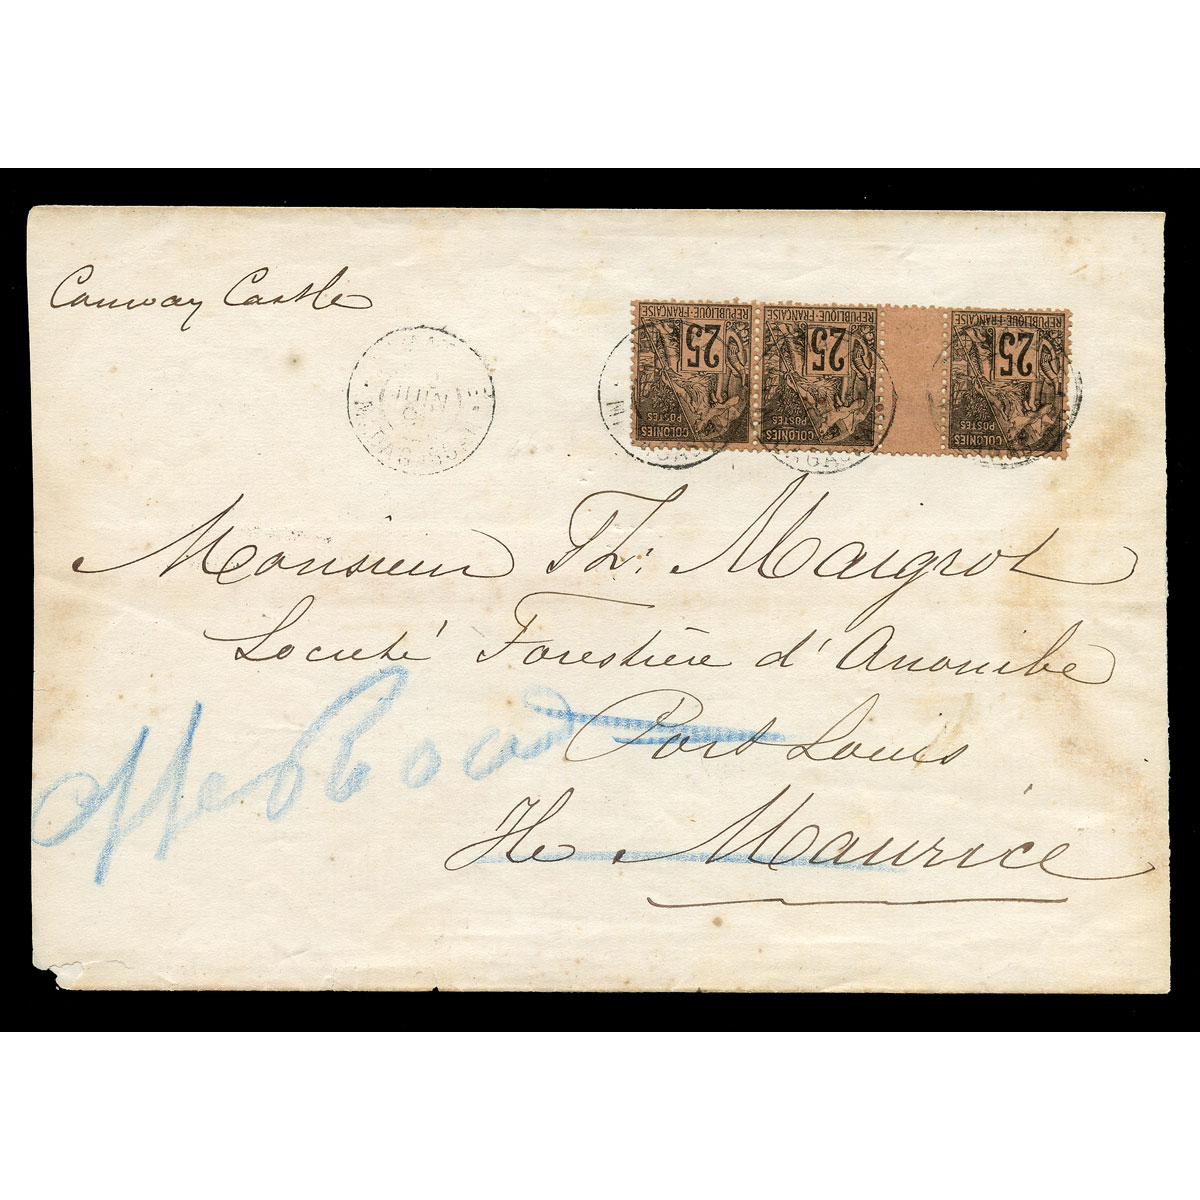 Conway Castle
REPUBLIQUE-FRANÇAISE
25
COLONIES
POSTES
REPUBLIQUE-FRANÇAISE
25
COLONIES
POSTES
REPUBLIQUE-FRANÇAISE
25
COLONIES
POSTES
JUIN
MADAGASCAR
Monsieur Th: Maigrot
Societé Forestière d'Anonibe
Port Louis
Ile Maurice